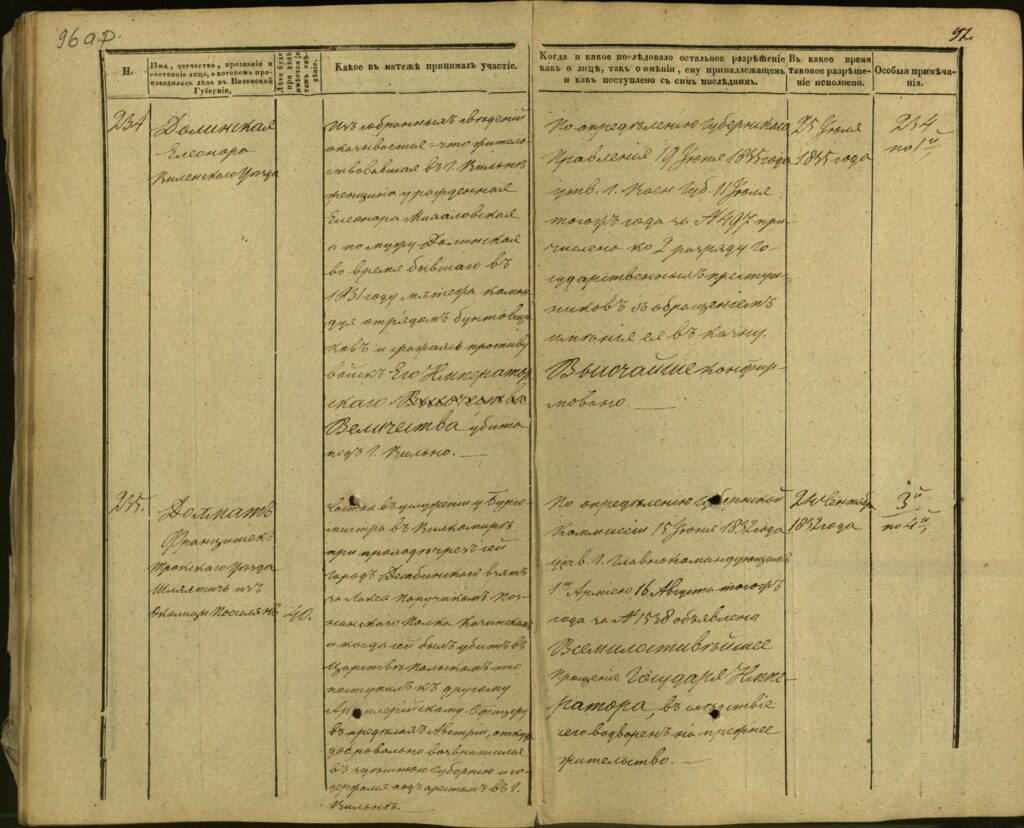 96 ар.
97.
Н.
Имя, отчество, прозваніе и
состояніе лица, о которомъ про-
изводилось дѣло въ Виленской
Губерніи.
Какое въ мятежѣ принималъ участіе.
Когда и какое послѣдовало остальное разрѣшеніе
какъ о лицѣ, такъ о имѣніи, ему принадлежащемъ
и какъ поступлено съ симъ послѣднимъ.
Въ какое время
таковое разрѣше-
ніе исполнено.
Особыя примѣча-
нія.
234
Долинская
Елеонора
Виленскаго Уѣзда
Изъ собранныхъ свѣденій
оказывается что житель
ствовавшая въ г. Вильнѣ
женщина урожденная
Елеонора
а по мужу Долинская
во время бывшаго въ
1831 году мятежа коман
дуя отрядомъ бунтовщи
ковъ и сражаясь противу
войскъ Его Император
скаго
Величества убита
подъ г. Вильно.
По опредѣленію Губернскаго
Правленія 19 Іюня 1835 года
утв. г. Воен. Губ. 11 Іюля
тогожъ года за № 497 при
числена ко 2 разряду Го-
сударственныхъ преступ-
никовъ съ обращеніемъ
имѣнія ея въ казну.
Высочайше конфир-
мовано.
25 Іюля
1835 года
234
по 1й
235.
Долматъ
Францишекъ
Трокскаго Уѣзда
Шляхтичь изъ
Околицы
40.
Состоя въ услуженіи у Бурго-
мистра въ Вилкомирѣ
при проходѣ чрезъ сей
городъ Дембинскаго взятъ
Поручикомъ Поз-
нанскаго Полка
и когда сей былъ убитъ въ
Царствѣ Польскомъ то
поступилъ къ другому
Артилерійскому Офицеру
въ предѣлахъ Австріи, откуда
добровольно возвратился
въ здѣшнюю Губернію и со-
держался подъ арестомъ въ г.
Вильнѣ.
По опредѣленію Губернской
Коммисіи 15 Іюня 1832 года
утв. г. Главнокомандующимъ
1ю Арміею 16 Августа тогожъ
года за № 1538 объявлено
Всемилостивѣйшее
Прощеніе Государя Импе-
ратора, въ слѣдствіе
чего водворенъ на прежнее
жительство.
Сентября
1832 года
3й
по 4й